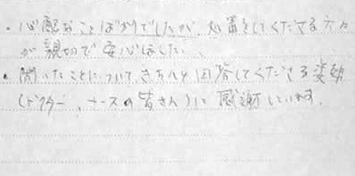 ・心配なことばかりでしたが、処置をしてくださる方々
が親切で安心しました。
・聞いたことについて、きちんと回答してくださる姿勢
(ドクター、ナースの皆さん)に感謝しています。